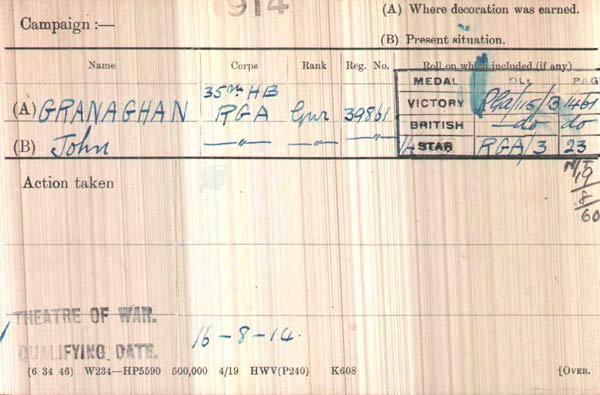 914
Campaign :—
(A) Where decoration was earned.
(B) Present situation.
Name Corps Rank Reg. No. Roll on which included (if any)
MEDAL PAGE
35th HB
(A) GRANAGHAN RGA Gnr 39861 VICTORY RGA/115/B 1461
BRITISH —do do
(B) John —"— —"— —"— 14 STAR RGA/3 23
Action taken
19
8
60
THEATRE OF WAR.
QUALIFYING DATE. 16-8-14.
(6 34 46) W234—HP5590 500,000 4/19 HWV(P240) K608 [OVER.